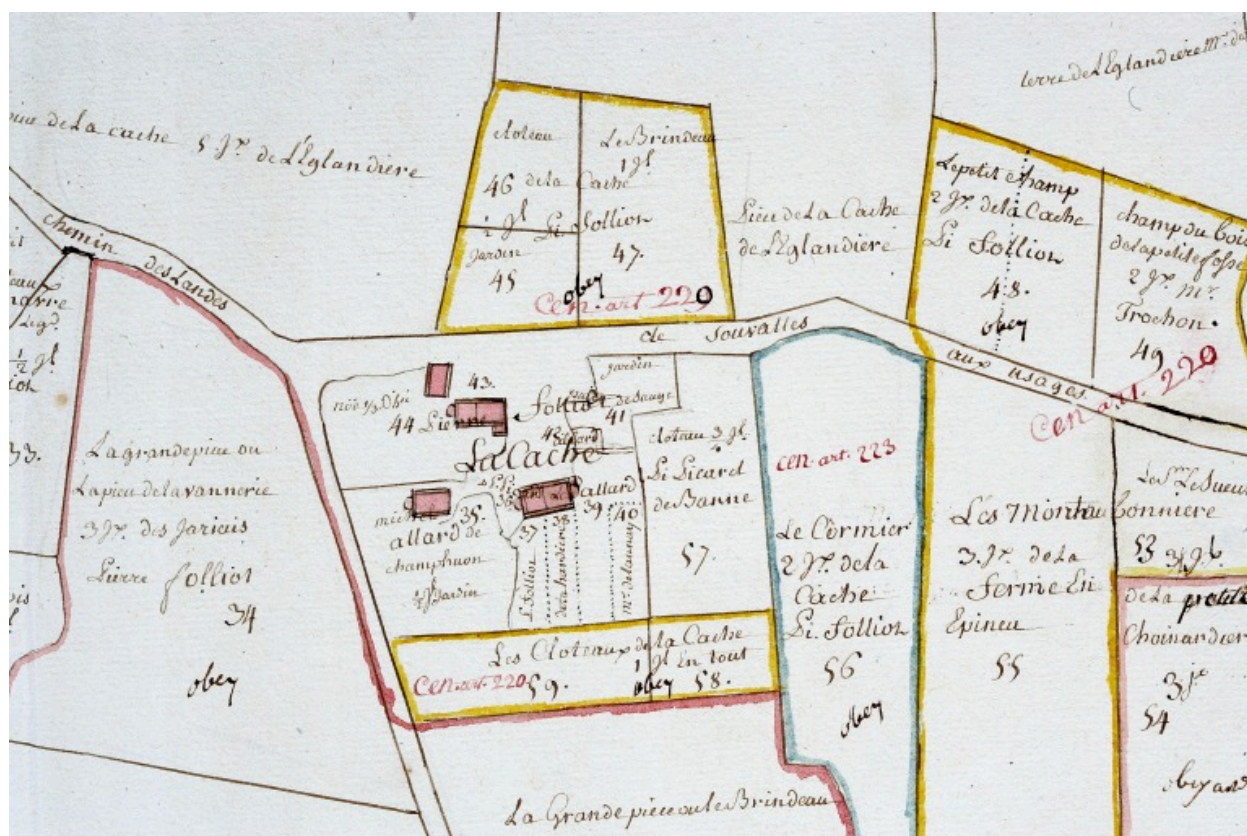 terre de LEglandiere Mr. de
piece de La cache 5 Jx. de LEglandiere
chemin
des Landes
de Souvalles
aux usages
cloteau
46 de la Cache
½ Jl Pi Follion
Jardin
45
Le Brindeau
1 Jl
47.
obey
Cen. art 220
Piece de La Cache
de LEglandiere
Le petit champ
2 Jx. de la Cache
Pi Follion
48.
obey
champ du bois
de la petite fosse
2 Jx. Mr.
Trochon.
49
Cen. art. 220
½ Jl
33.
La grande piece ou
La piece de la vannerie
3 Jx. des Jariais
Pierre Folliot
34
obey
43.
44 Pierre Folliot
La Cache
Jardin
41
35.
allard de
champhuon
½ Jl Jardin
37
38
39
40
allard
P. Folliot
de la handiere
Mr. delaunay
cloteau 3/4 Jl.
Pi Picaret
de Banne
57.
Cen. art. 223
Le Cormier
2 Jx. de la
Cache
Pi. Follion
56
obey
3 Jx. de la
Ferme En
Epineu
55
Le Sr. Le Sueur
bonniere
53 3/4 Jl.
de la petite
Choinardier
3 Jx
54
obey
Les Cloteaux de la Cache
1 Jl En tout
Cen. art. 220 59. obey 58.
La Grande piece ou le Brindeau